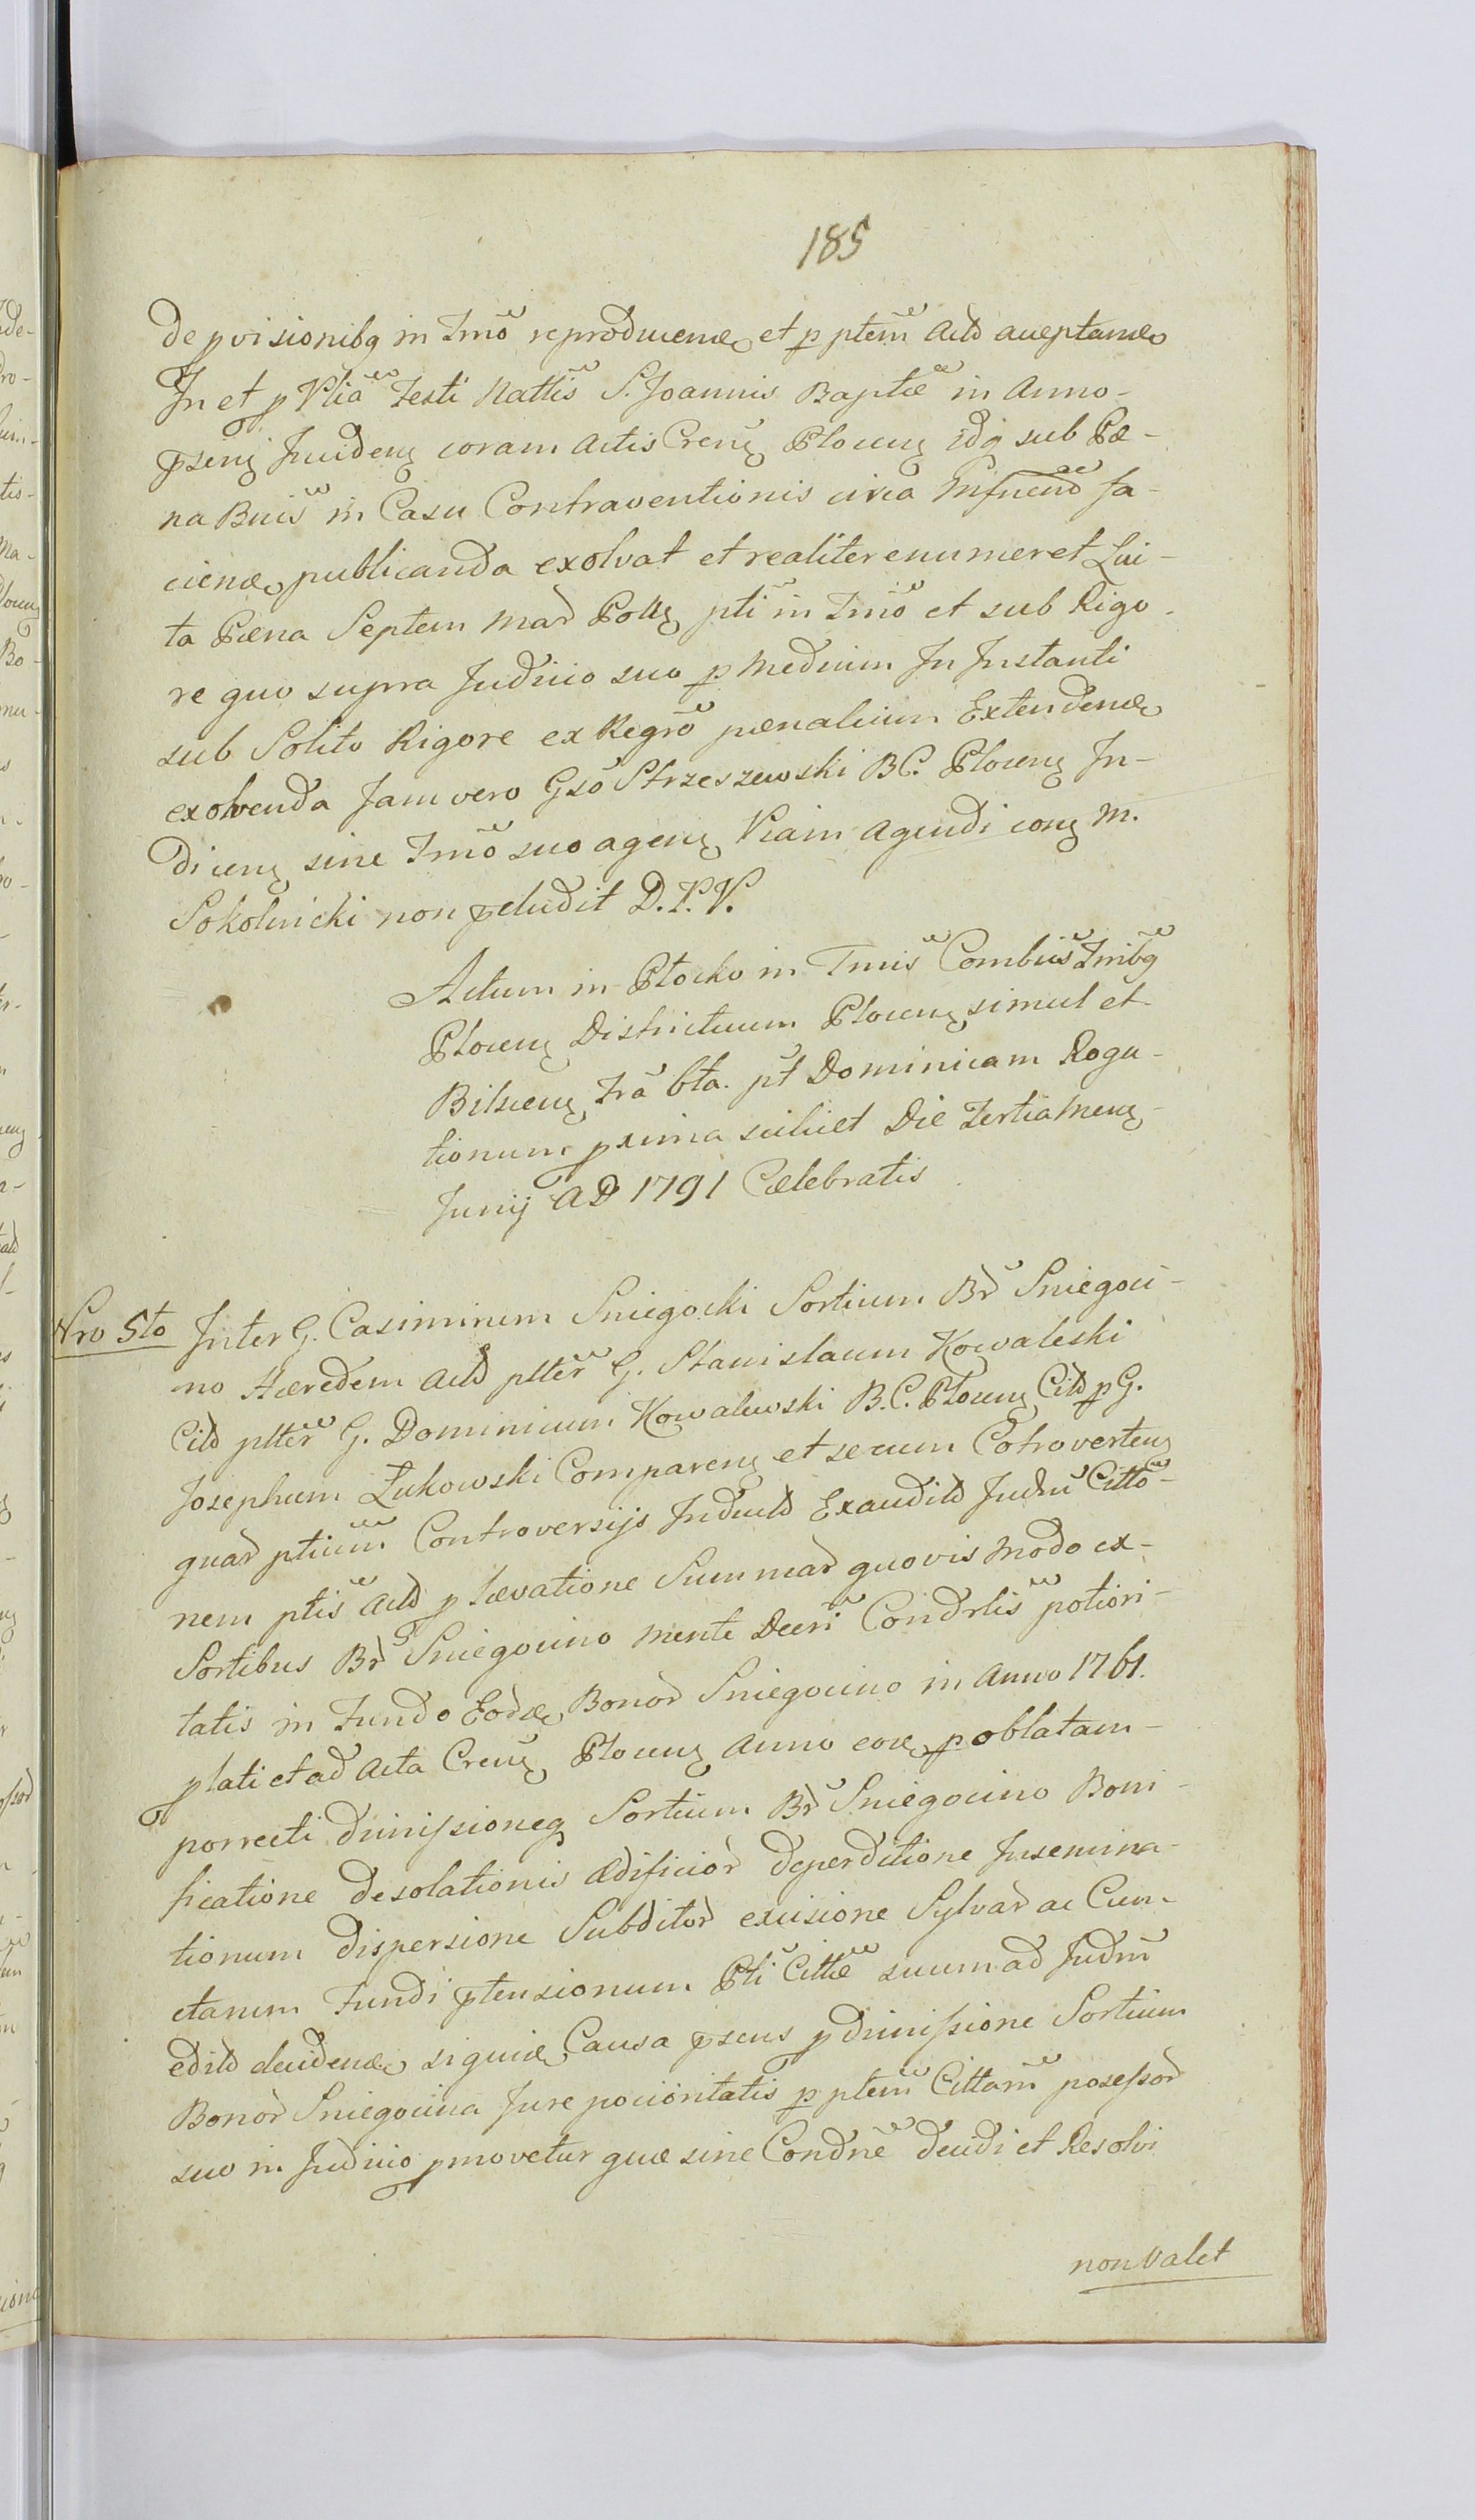 185
de pvisionibq in Tmo reproducene et p ptem Actd acceptane
In et p Vlia Festi Nattis S. Joannis Baptæ in Anno-
pseng Inciden coram Actis Cren Plocen idq sub Pæ-
na Bnis in Casu Contraventionis circa Insnend fa-
ciene publicanda exolvat et realiter enumeret Lui-
ta Pæna Septem Mad Poll pti in Tmo et sub Rigo-
re quo supra Judicio suo p Medium In Instanti
sub Solito Rigore ex Regro pænalium Extendene
exolvenda Jam vero Gso Strzeszewski B.C. Plocen In-
dicen sine Tmo suo agen Viam Agendi con M.
Sokolnicki non pcludit D.P.V.
Actum in Płocko in Tmis Combus Tribq
Plocen Districtuum Plocen simul et
Bilscen Fra 6ta. pt Dominicam Roga-
tionum pxima scilicet Die Tertia Mens-
Junij AD 1791 Cælebratis
Nro 5to Inter G. Casimirum Sniegocki Sortium Br Sniegoci-
no Hæredem Actd ptter G. Stanislaum Kowaleski
Citd ptter G. Dominicum Kowalewski B.C. Plocen Citd p G.
Josephum Żukowski Comparen et secum Cotroverten
quar ptium Controversijs Inductd Exauditd Judm Citto-
nem ptis Actd p lævatione Summar quovis modo ex-
Sortibus Br Sniegocino mente Decri Condrtis potiori-
tatis in Fundo Eode Bonor Sniegocino in Anno 1761.
plati et ad Acta Cren Plocen Anno eoe p oblatam-
porrecti dimissioneq Sortium Br Sniegocino Boni-
ficatione desolationis Ædificior deperditione Insemina-
tionum dispersione Subditor excisione Sylvar ac Cun-
ctarum Fundi ptensionum Pti Cittæ suum ad Judm
editd decidene siquid Causa psens p dimissione Sortium
Bonor Sniegocina Jure pocioritatis p ptem Cittam posessor
suo in Judicio pmovetur quæ sine Condne decidi et Resolvi
non Valet